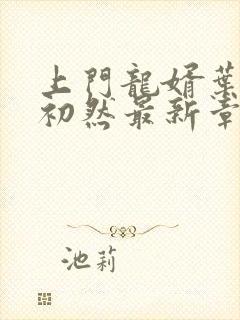 上門龍婿葉
初然最新章
池莉